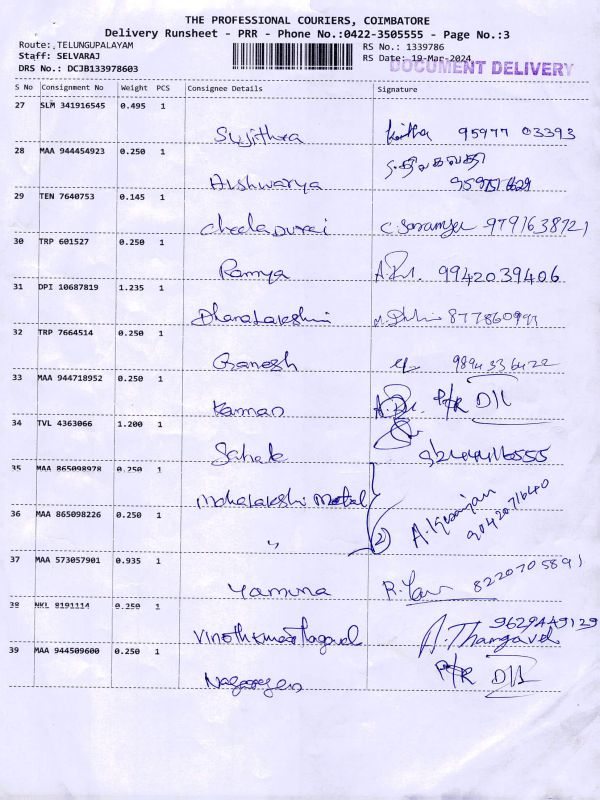 THE PROFESSIONAL COURIERS, COIMBATORE
Delivery Runsheet - PRR - Phone No.:0422-3505555 - Page No.:3
Route: TELUNGUPALAYAM
RS No.: 1339786
Staff: SELVARAJ
RS Date: 19-Mar-2024
DRS No.: DCJB133978603
DOCUMENT DELIVERY
S No Consignment No Weight PCS Consignee Details Signature
27 SLM 341916545 0.495 1
Sujithra 95977 03393
28 MAA 944454923 0.250 1
Aishwarya
29 TEN 7640753 0.145 1
9791638721
30 TRP 601527 0.250 1
Ramya 9942039406
31 DPI 10687819 1.235 1
Dhanalakshmi
32 TRP 7664514 0.250 1
Ganesh 9894336422
33 MAA 944718952 0.250 1
Kannan
34 TVL 4363066 1.200 1
35 MAA 865098978 0.250 1
Mahalakshmi Metal
36 MAA 865098226 0.250 1
" 2
37 MAA 573057901 0.935 1
Yamuna 8220705891
38 NKL 8191114 0.250 1
9629449129
Vinothkumar Thagavel A. Thangavel
39 MAA 944509600 0.250 1